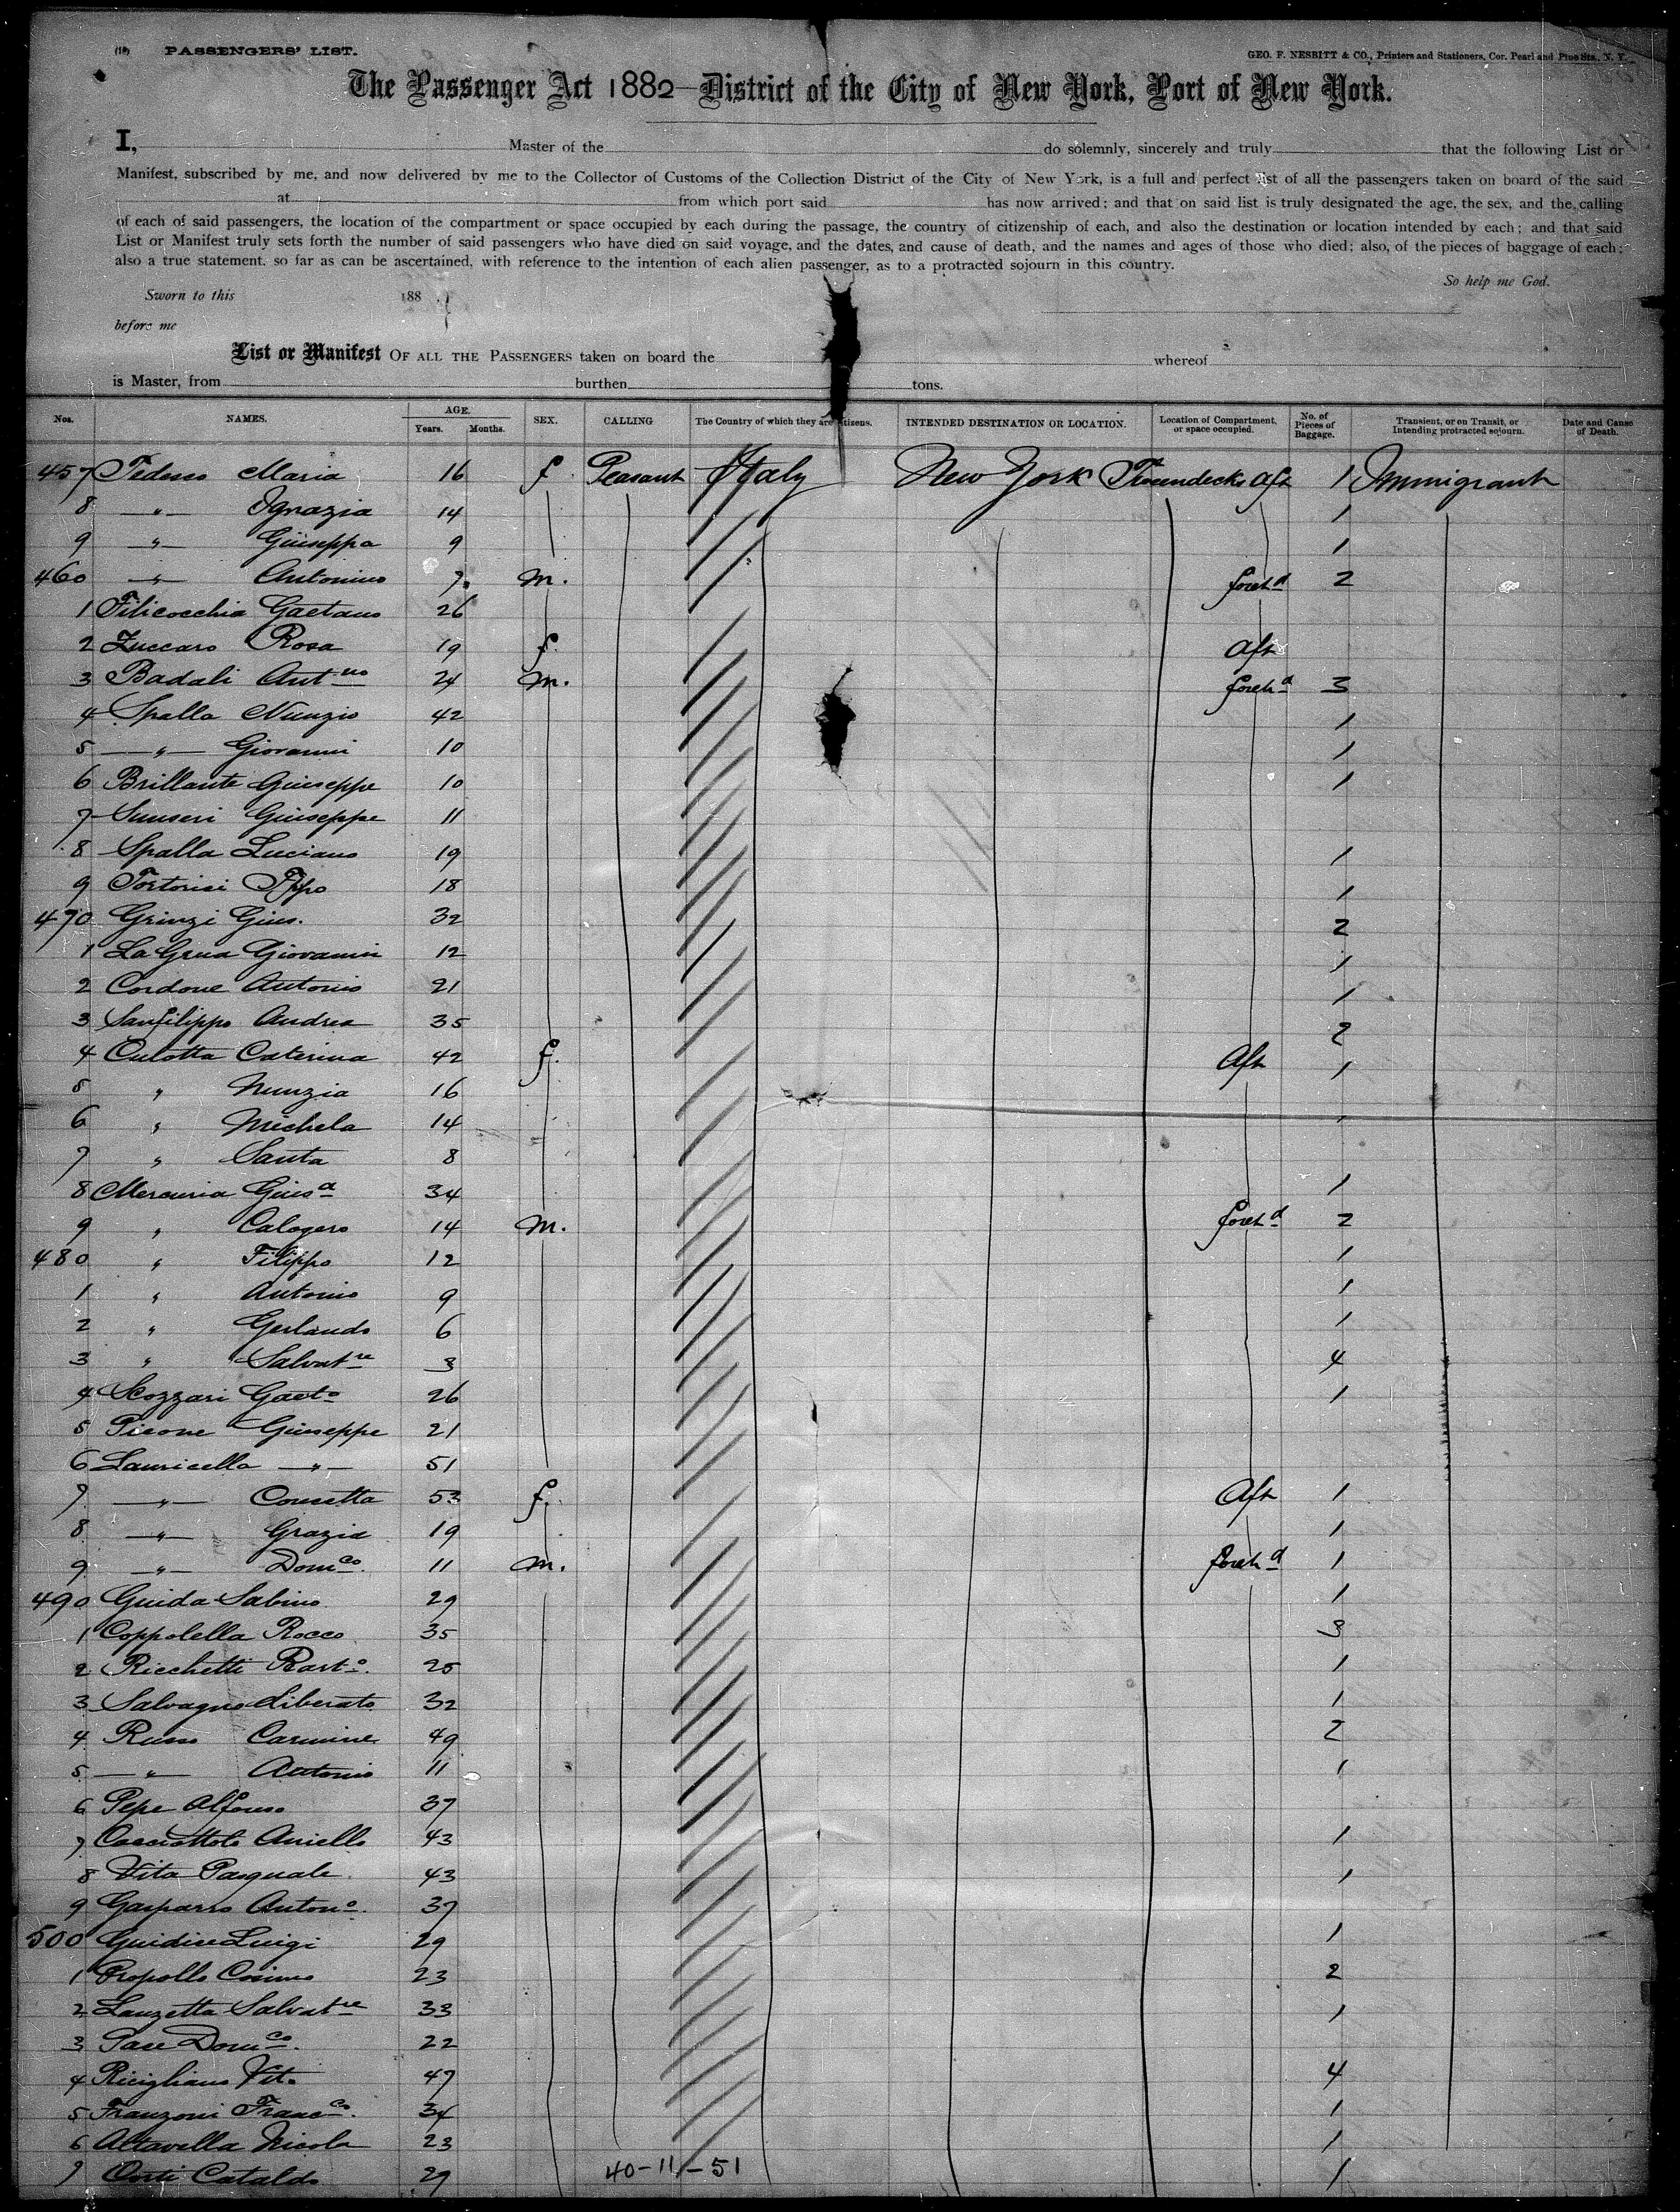 (10) PASSENGERS' LIST.
GEO. F. NESBITT & CO., Printers and Stationers, Cor. Pearl and Pine Sts., N. Y.
The Passenger Act 1882—District of the City of New York, Port of New York.
I, Master of the do solemnly, sincerely and truly that the following List or
Manifest, subscribed by me, and now delivered by me to the Collector of Customs of the Collection District of the City of New York, is a full and perfect list of all the passengers taken on board of the said
at from which port said has now arrived; and that on said list is truly designated the age, the sex, and the calling
of each of said passengers, the location of the compartment or space occupied by each during the passage, the country of citizenship of each, and also the destination or location intended by each; and that said
List or Manifest truly sets forth the number of said passengers who have died on said voyage, and the dates, and cause of death, and the names and ages of those who died; also, of the pieces of baggage of each;
also a true statement, so far as can be ascertained, with reference to the intention of each alien passenger, as to a protracted sojourn in this country.
So help me God.
Sworn to this 188
before me
List or Manifest OF ALL THE PASSENGERS taken on board the whereof
is Master, from burthen tons.
Nos. NAMES. AGE. Years. Months. SEX. CALLING The Country of which they are citizens. INTENDED DESTINATION OR LOCATION. Location of Compartment, or space occupied. No. of Pieces of Baggage. Transient, or on Transit, or Intending protracted sojourn. Date and Cause of Death.
457 Tedesco Maria 16 f. Peasant Italy New York Aft 1 Immigrant
8 " Ignazia 14 1
9 " Giuseppa 9 1
460 " Antonino 7 m. foreh d 2
1 Filicocchia Gaetano 26
2 Zuccaro Rosa 19 f. Aft
3 Badali Ant no 24 m. foreh d 3
4 Spalla Nunzio 42 1
5 " Giovanni 10 1
6 Brillante Giuseppe 10 1
7 Sunseri Giuseppe 11
8 Spalla Luciano 19 1
9 Tortorici 18 1
470 Grinzi Gius. 32 2
1 La Grua Giovanni 12 1
2 Cordone Antonio 21 1
3 Sanfilippo Andrea 35 2
4 Culotta Caterina 42 f. Aft 1
5 " Nunzia 16
6 " Michela 14
7 " Santa 8
8 Mercuria Gius a 34 1
9 " Calogero 14 m. foreh d 2
480 " Filippo 12 1
1 " Antonio 9 1
2 " Gerlando 6 1
3 " Salvat re 3 4
4 Scozzari Gaet o 26 1
5 Picone Giuseppe 21
6 Lauricella " 51
7 " Concetta 53 f. Aft 1
8 " Grazia 19 1
9 " Dom co. 11 m. foreh d 1
490 Guida Sabino 29 1
1 Coppolella Rocco 35 3
2 Ricchetti 25 1
3 Salvagno Liberato 32 1
4 Russo Carmine 49 2
5 " Antonio 11 1
6 Pepe Alfonso 37
7 Cacciottolo Aniello 43 1
8 Vita Pasquale 43 1
9 Gasparro Anton o. 37
500 Guidice Luigi 29 1
1 Propollo Cosimo 23 2
2 Lanzetta Salvat re 33 1
3 Pace Dom co. 22
4 Ricigliano Vito 47 4
5 Franzoni Franc co. 34 1
6 Altavella Nicola 23 1
7 Cataldo 29 1
40-11-51